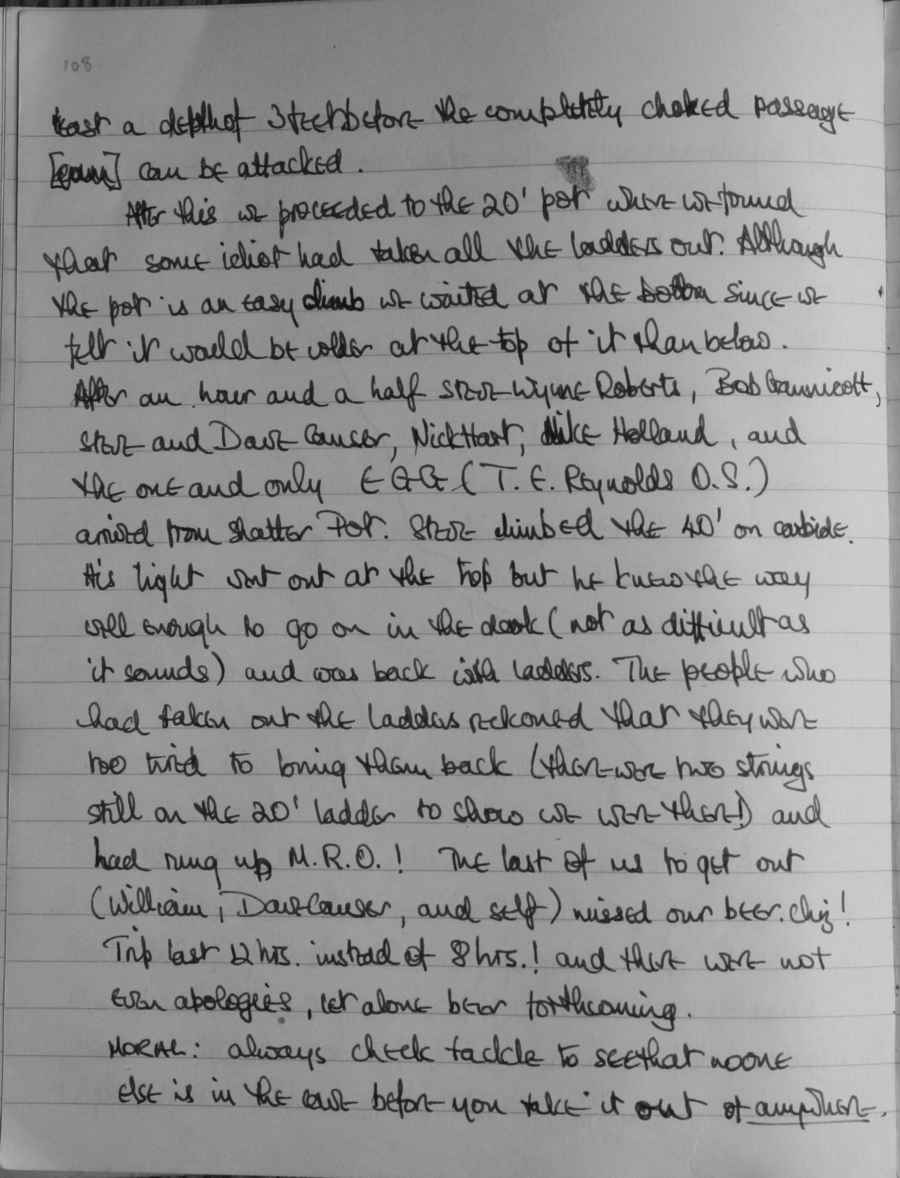 108
least a depth of 3 feet before the completely choked passage
can be attacked.
After this we proceeded to the 20' pot where we found
that some idiot had taken all the ladders out. Although
the pot is an easy climb we waited at the bottom since we
felt it would be colder at the top of it than below.
After an hour and a half Steve Wynne Roberts, Bob Gannicott,
Steve and Dave Causer, Nick Hart, Mike Holland, and
the one and only EGG (T. E. Reynolds O.S.)
arrived from Shatter Pot. Steve climbed the 40' on carbide.
His light went out at the top but he knew the way
well enough to go on in the dark (not as difficult as
it sounds) and was back with ladders. The people who
had taken out the ladders reckoned that they were
too tired to bring them back (there were two strings
still on the 20' ladder to show we were there!) and
had rung up M.R.O.! The last of us to get out
(William, Dave Causer, and self) missed our beer. chiz!
Trip last 12 hrs. instead of 8 hrs.! and there were not
even apologies, let alone beer forthcoming.
MORAL: always check tackle to see that no one
else is in the cave before you take it out of anywhere.